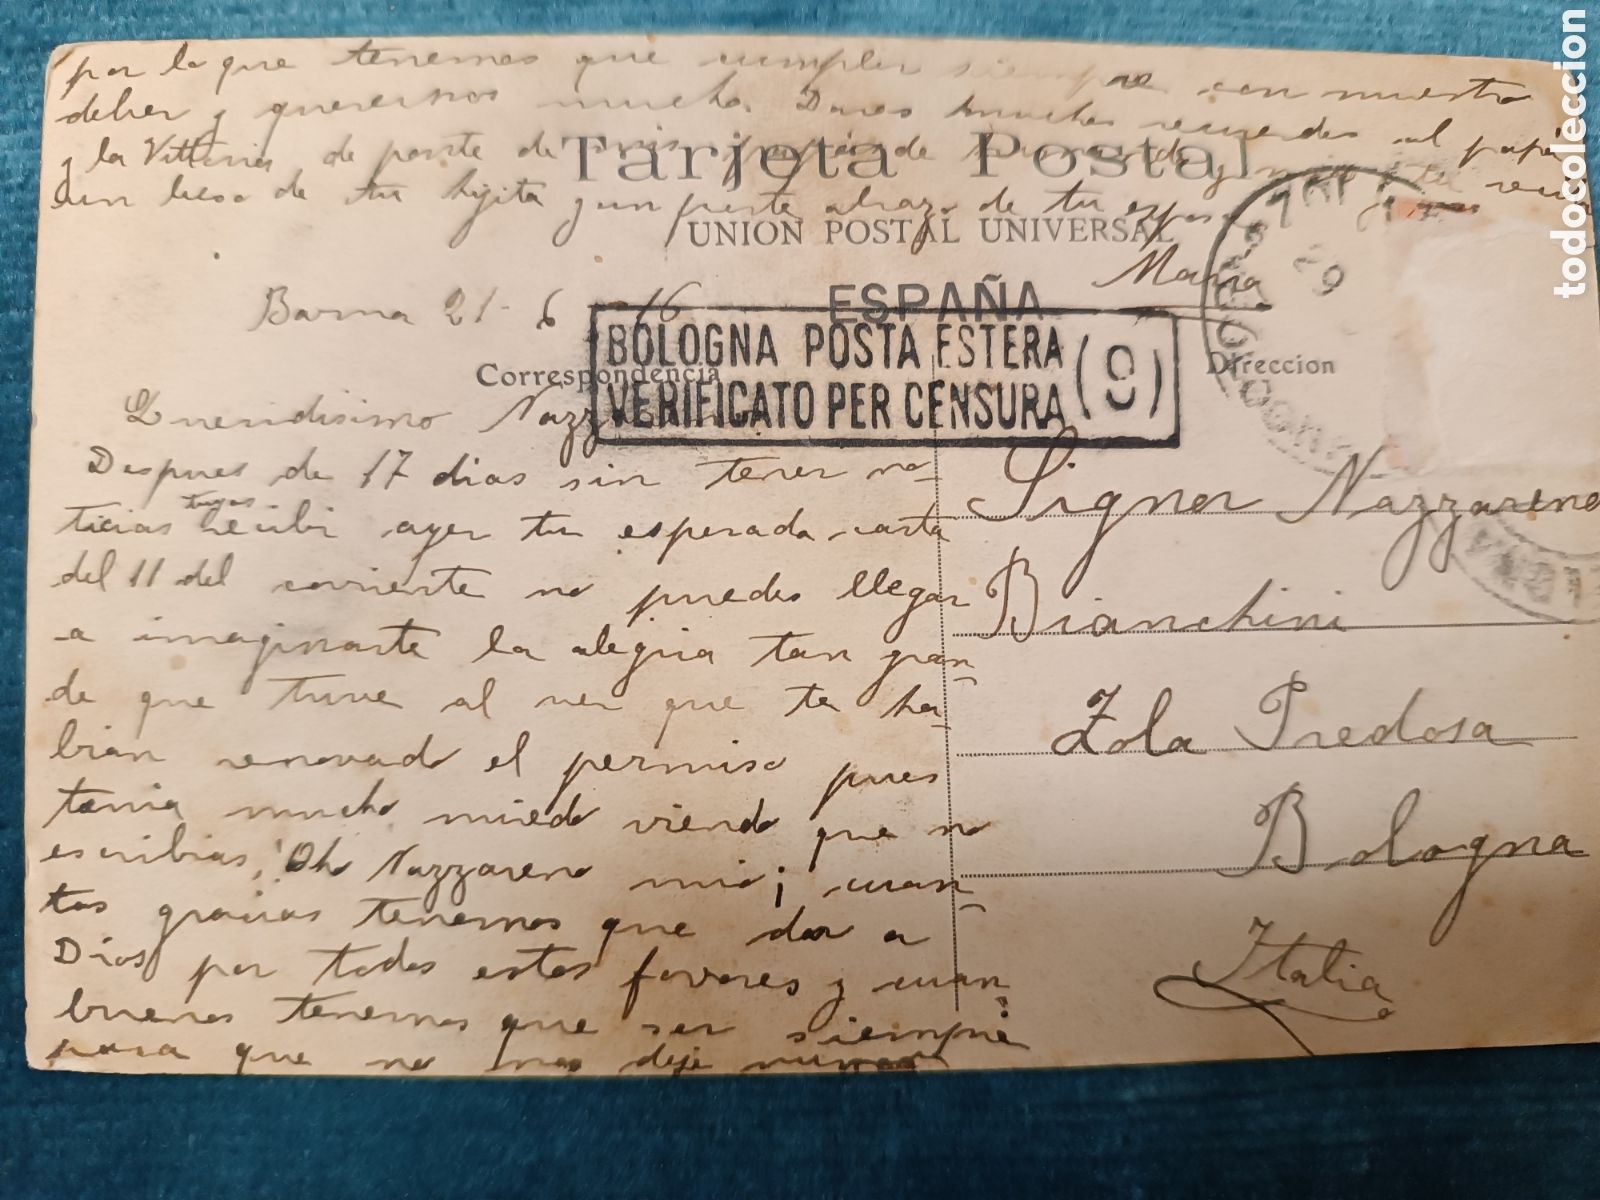 Tarjeta Postal
UNION POSTAL UNIVERSAL
ESPAÑA
Correspondencia
Direccion
BOLOGNA POSTA ESTERA
VERIFICATO PER CENSURA (9)
Barna 21-6-16
Queridisimo Nazzareno
Despues de 17 dias sin tener no-
ticias tuyas recibi ayer tu esperada carta
del 11 del corriente no puedes llegar
a imaginarte la alegria tan gran-
de que tuve al ver que te ha-
bian renovado el permiso pues
tenia mucho miedo viendo que no
escribias, ¡Oh Nazzareno mio¡ cuan-
tas gracias tenemos que dar a
Dios por todos estos favores y cuan
buenos tenemos que ser siempre
para que no nos deje nunca
por lo que tenemos que cumplir siempre con nuestro
deber y querernos mucho. Daras muchos recuerdos al papá
y la Vittoria de parte de mis y tu recibe
un beso de tu hijita y un fuerte abrazo de tu esposa
Maria
Signor Nazzareno
Bianchini
Zola Predosa
Bologna
Italia
todocoleccion